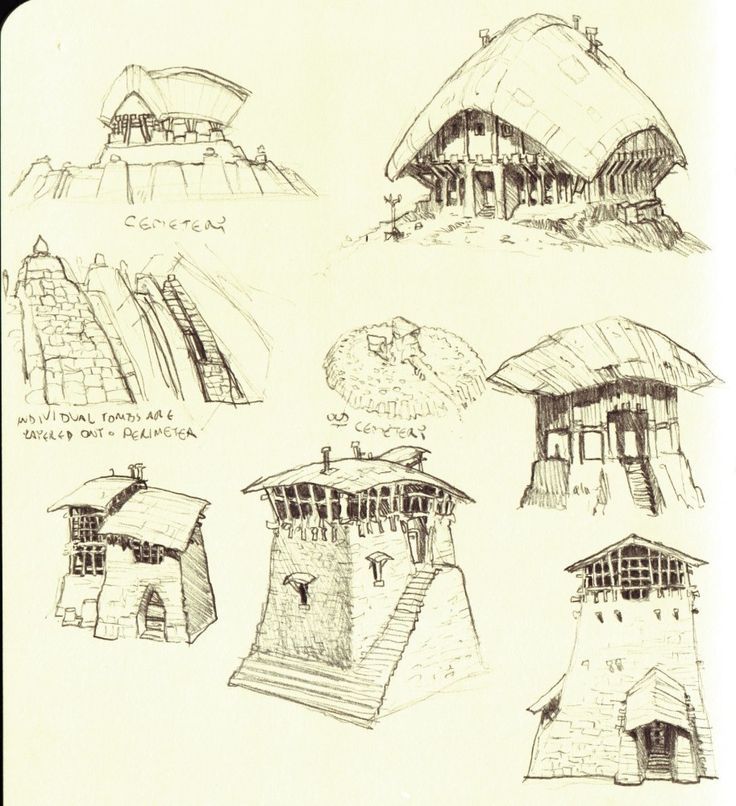 CEMETERY
INDIVIDUAL TOMBS ARE
LAYERED ONTO PERIMETER
OLD CEMETERY